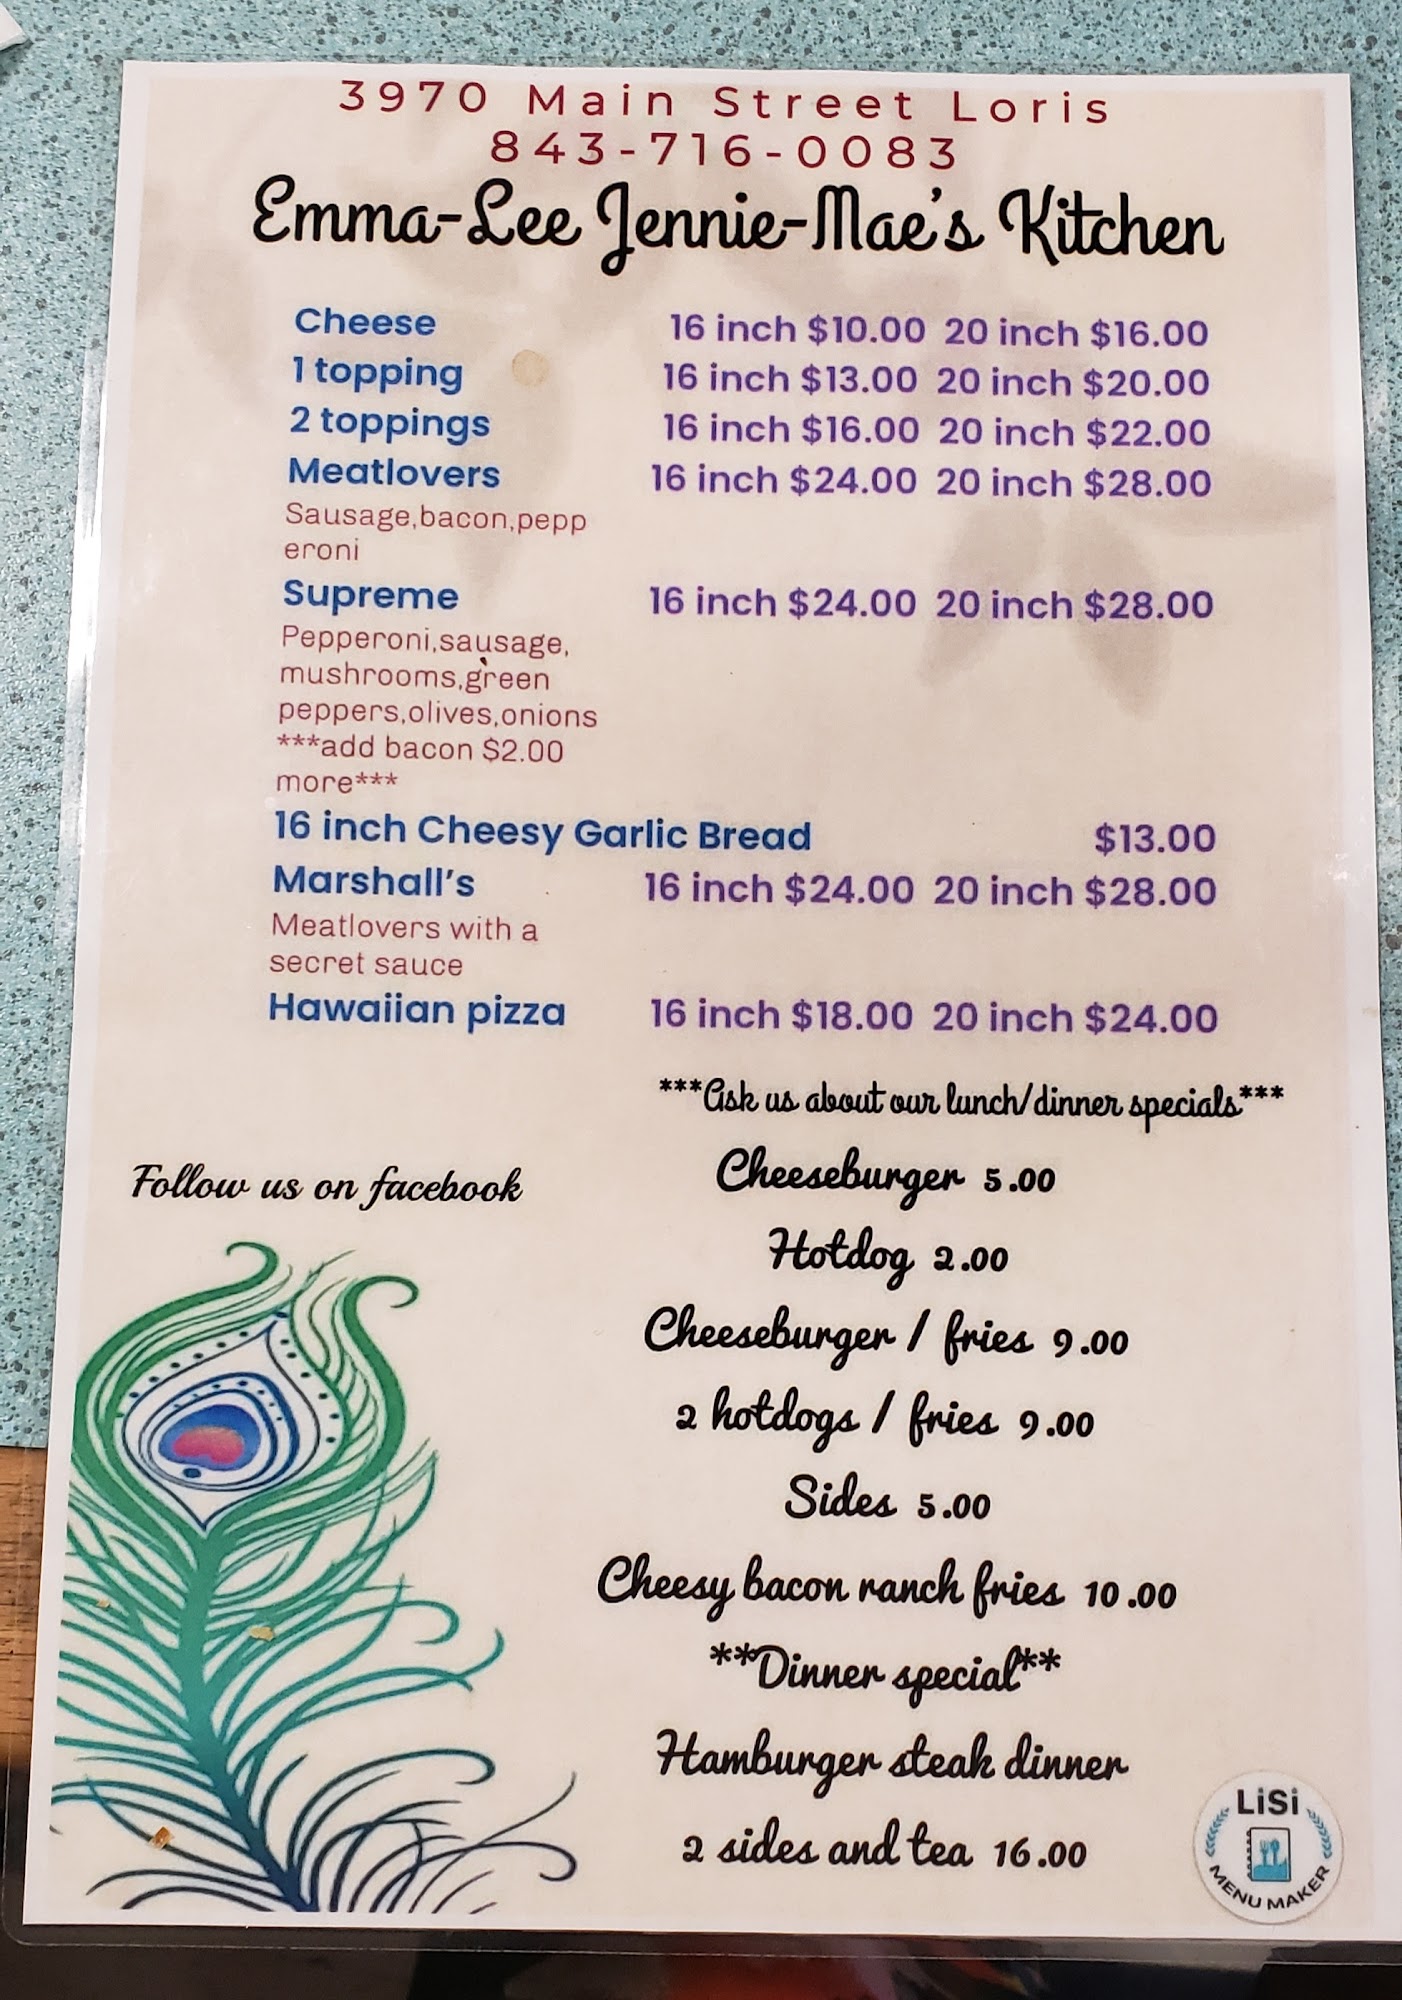 3970 Main Street Loris
843-716-0083
Emma-Lee Jennie-Mae's Kitchen
Cheese 16 inch $10.00 20 inch $16.00
1 topping 16 inch $13.00 20 inch $20.00
2 toppings 16 inch $16.00 20 inch $22.00
Meatlovers 16 inch $24.00 20 inch $28.00
Sausage,bacon,pepp
eroni
Supreme 16 inch $24.00 20 inch $28.00
Pepperoni,sausage,
mushrooms,green
peppers,olives,onions
***add bacon $2.00
more***
16 inch Cheesy Garlic Bread $13.00
Marshall's 16 inch $24.00 20 inch $28.00
Meatlovers with a
secret sauce
Hawaiian pizza 16 inch $18.00 20 inch $24.00
***Ask us about our lunch/dinner specials***
Follow us on facebook
Cheeseburger 5.00
Hotdog 2.00
Cheeseburger / fries 9.00
2 hotdogs / fries 9.00
Sides 5.00
Cheesy bacon ranch fries 10.00
**Dinner special**
Hamburger steak dinner
2 sides and tea 16.00
LiSi
MENU MAKER